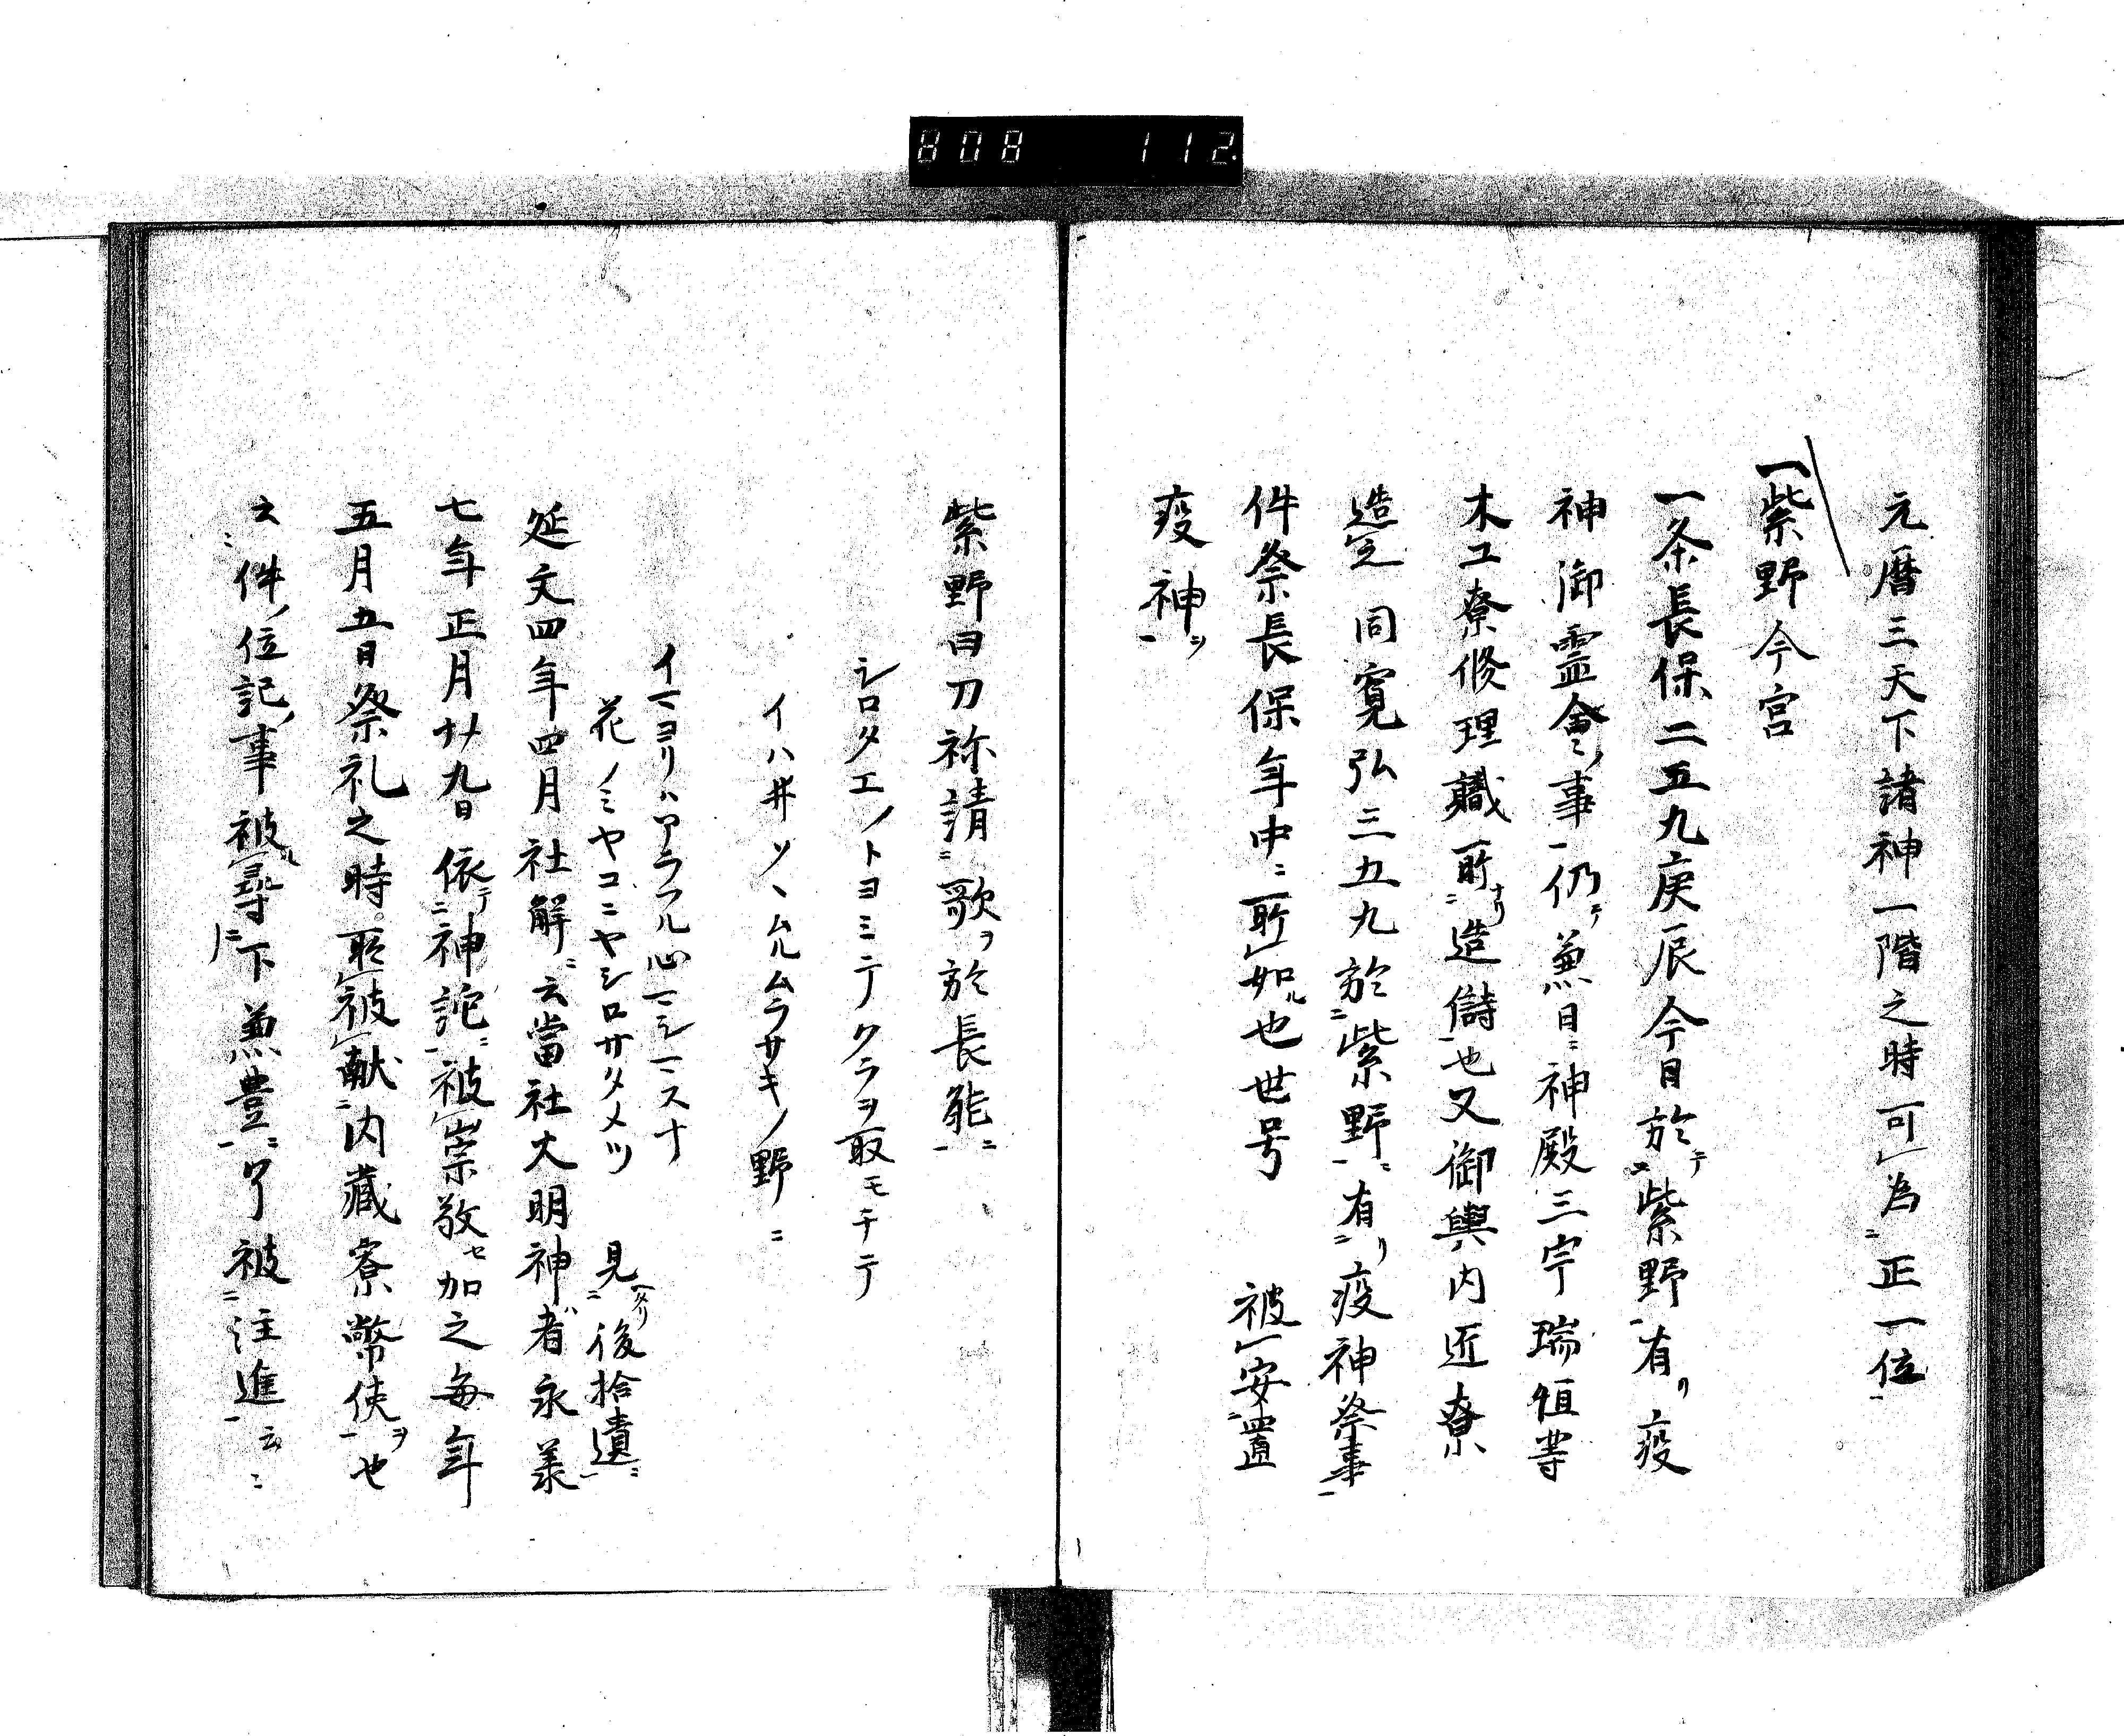 808 112.
元暦三天下諸神一階之時可為正一位
一紫野今宮
一条長保二五九庚辰今日於テ紫野有リ疫
神御霊會ノ事仍テ兼日神殿三宇瑞垣等
木工寮修理職所ナリ造儲也又御輿内匠寮
造之同寛弘三五九於紫野有リ疫神祭事
件祭長保年中所如ル也世号 被安置
疫神ヲ
紫野曰刀祢請歌ヲ於長能
シロタエノトヨミテクラヲ取モチテ
イハヰソヽムルムラサキノ野ニ
イマヨリハアラフル心マシマスナ
花ノミヤコニヤシロサタメツ 見タリ後拾遺
延文四年四月社解云當社大明神者永美
七年正月廿九日依テ神詫被崇敬セ加之毎年
五月五日祭礼之時取被献内蔵寮幣使ヲ也
云件ノ位記ノ事被ル尋下兼豊了被注進云